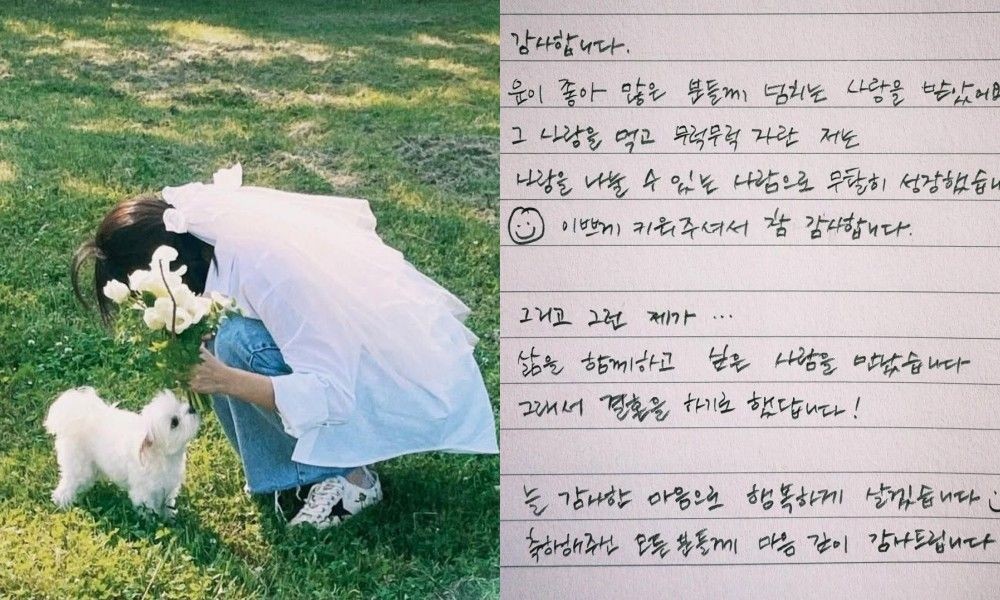 감사합니다.
운이 좋아 많은 분들께 넘치는 사랑을 받았어요
그 사랑을 먹고 무럭무럭 자란 저는
사랑을 나눌 수 있는 사람으로 무탈히 성장했습니
이쁘게 키워주셔서 참 감사합니다.
그리고 그런 제가 ...
삶을 함께하고 싶은 사람을 만났습니다
그래서 결혼을 하기로 했답니다!
늘 감사한 마음으로 행복하게 살겠습니다
축하해주신 모든 분들께 마음 깊이 감사드립니다